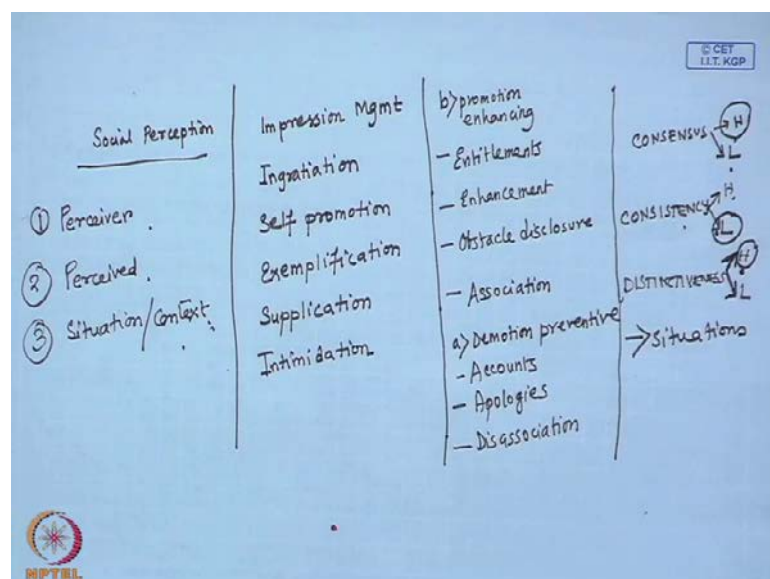 © CET
I.I.T. KGP
Social Perception
① Perceiver.
② Perceived.
③ Situation/Context.
Impression Mgmt
Ingratiation
Self promotion
Exemplification
Supplication
Intimidation
b) promotion
enhancing
- Entitlements
- Enhancement
- Obstacle disclosure
- Association
a) Demotion preventive
- Accounts
- Apologies
- Disassociation
CONSENSUS H
L
CONSISTENCY H
L
DISTINCTIVENESS H
L
→ Situations
NPTEL